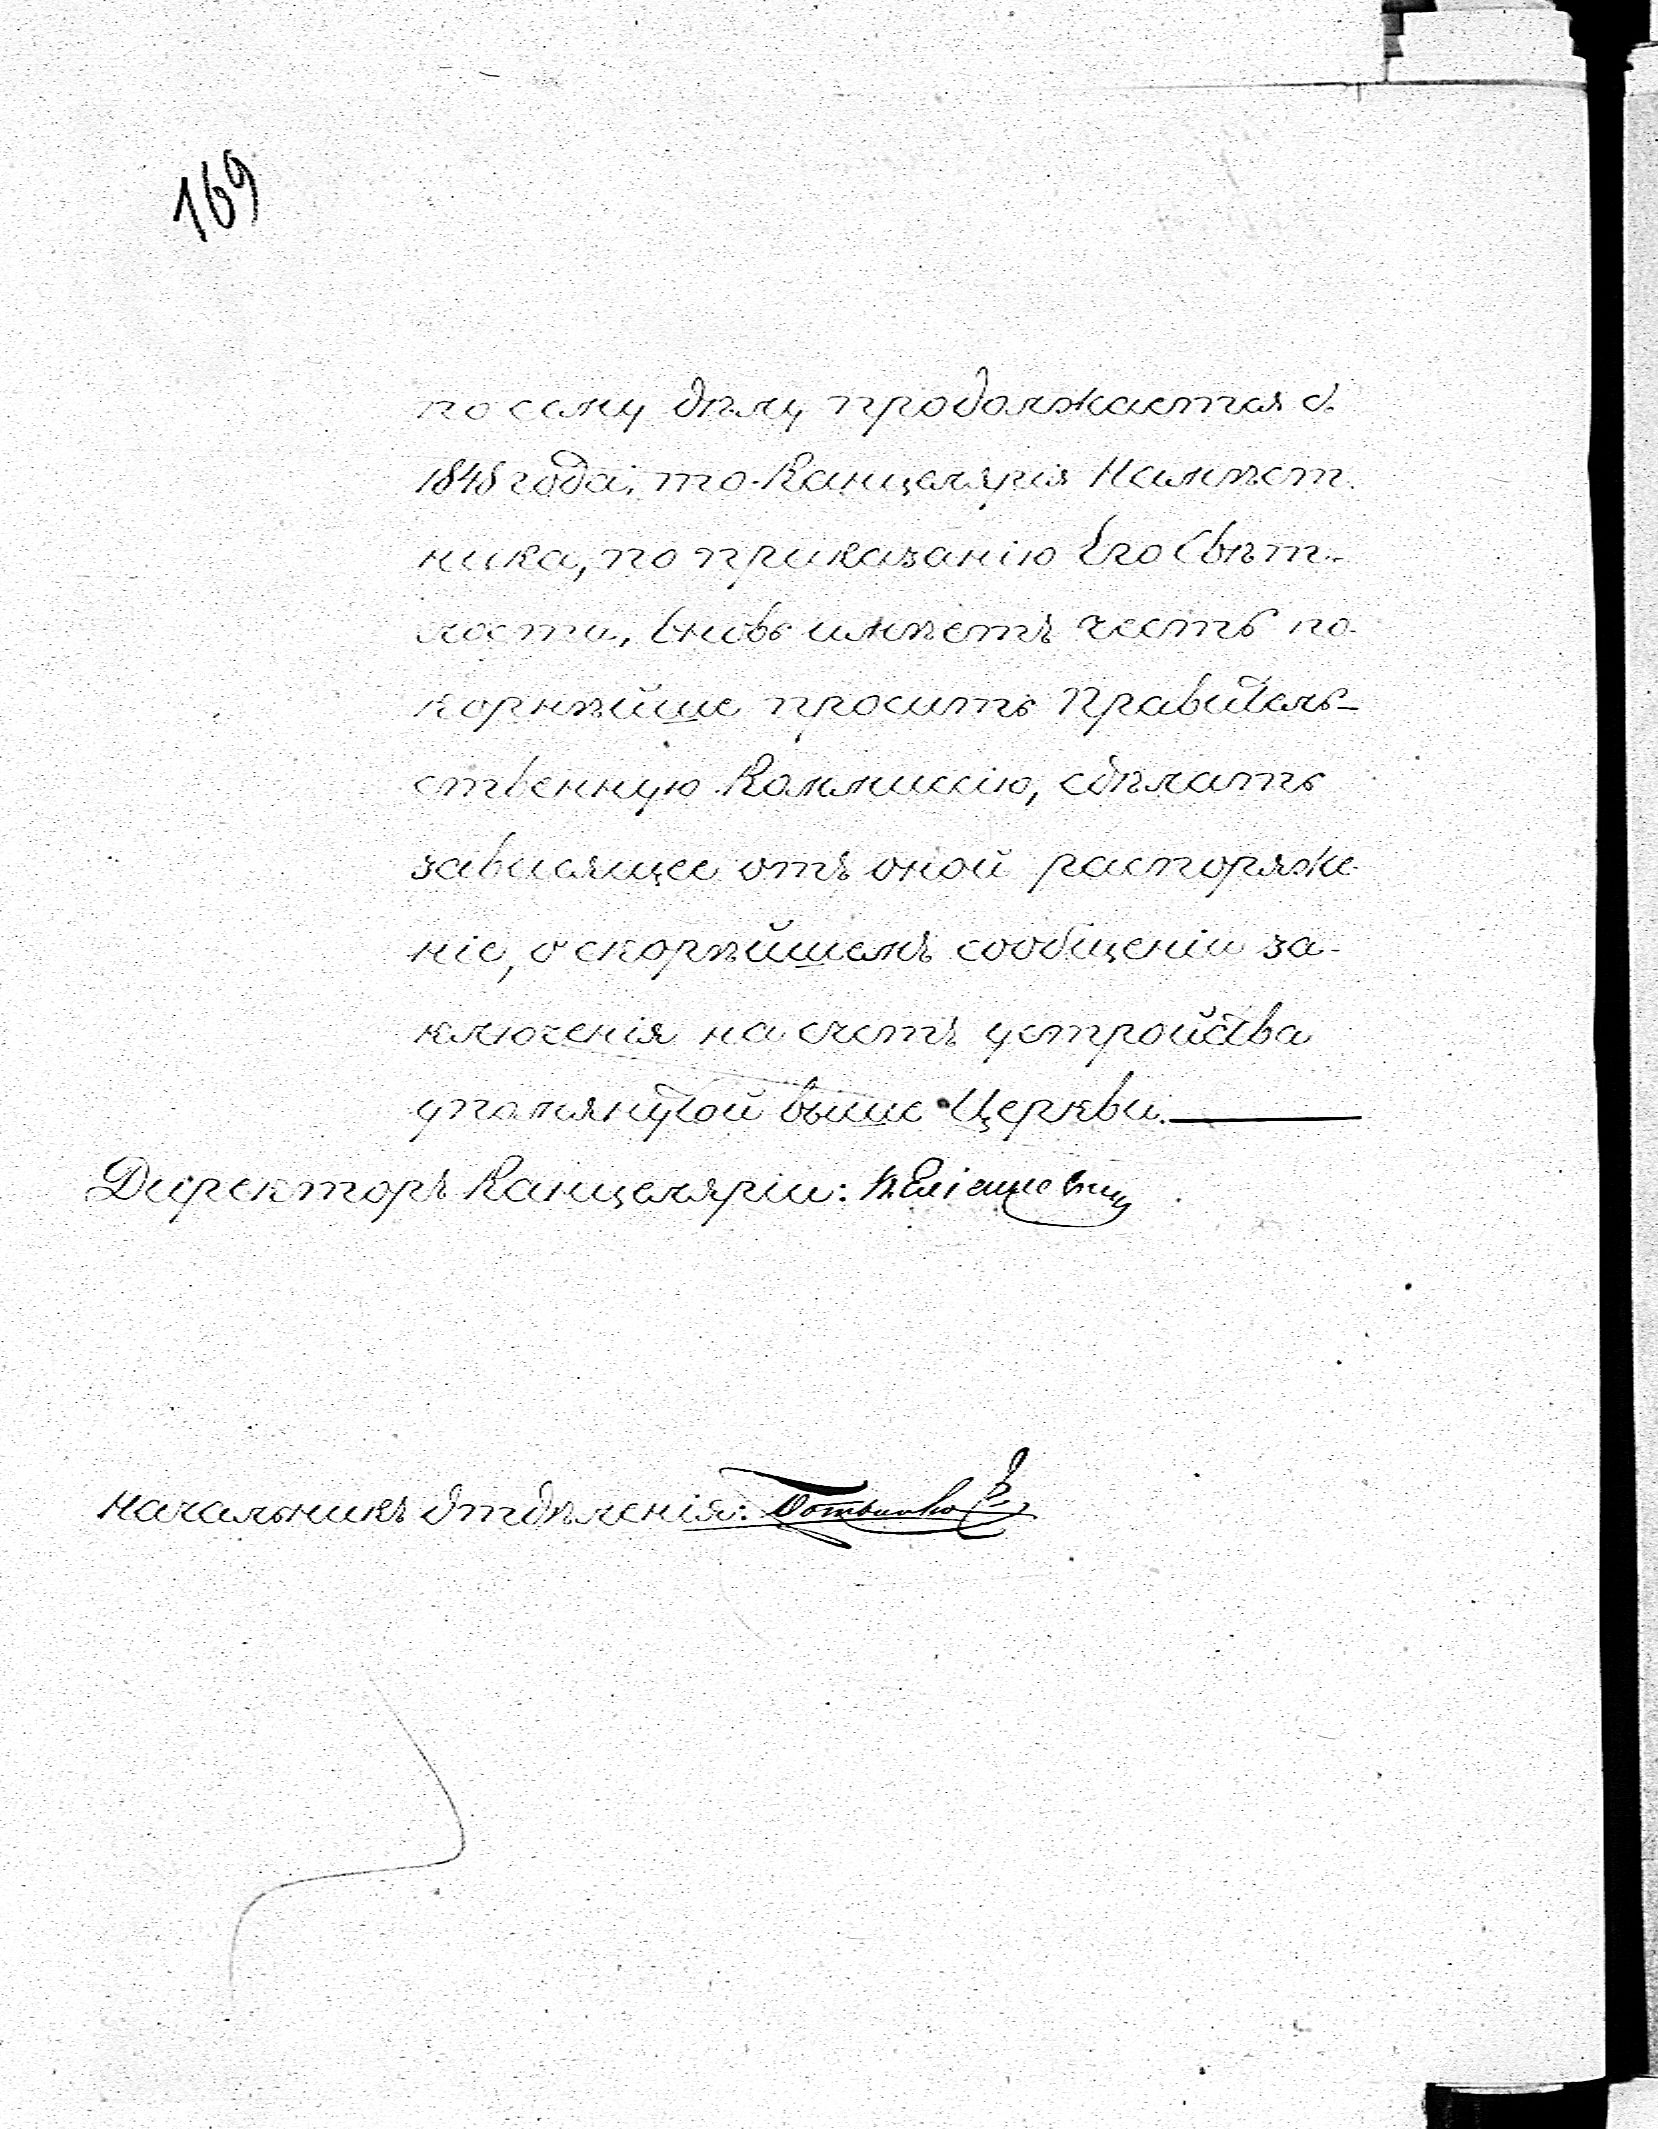 169
по сему дѣлу продолжается съ
1848 года; то Канцелярія Намѣст-
ника, по приказанію Его Свѣт-
лости, вновь имѣетъ честь по-
корнѣйше просить Правитель-
ственную Коммиссію, сдѣлать
зависящее отъ оной распоряже-
ніе, о скорѣйшемъ сообщеніи за-
ключенія на счетъ устройства
упомянутой выше Церкви.
Директоръ Канцеляріи:
Начальникъ Отдѣленія: